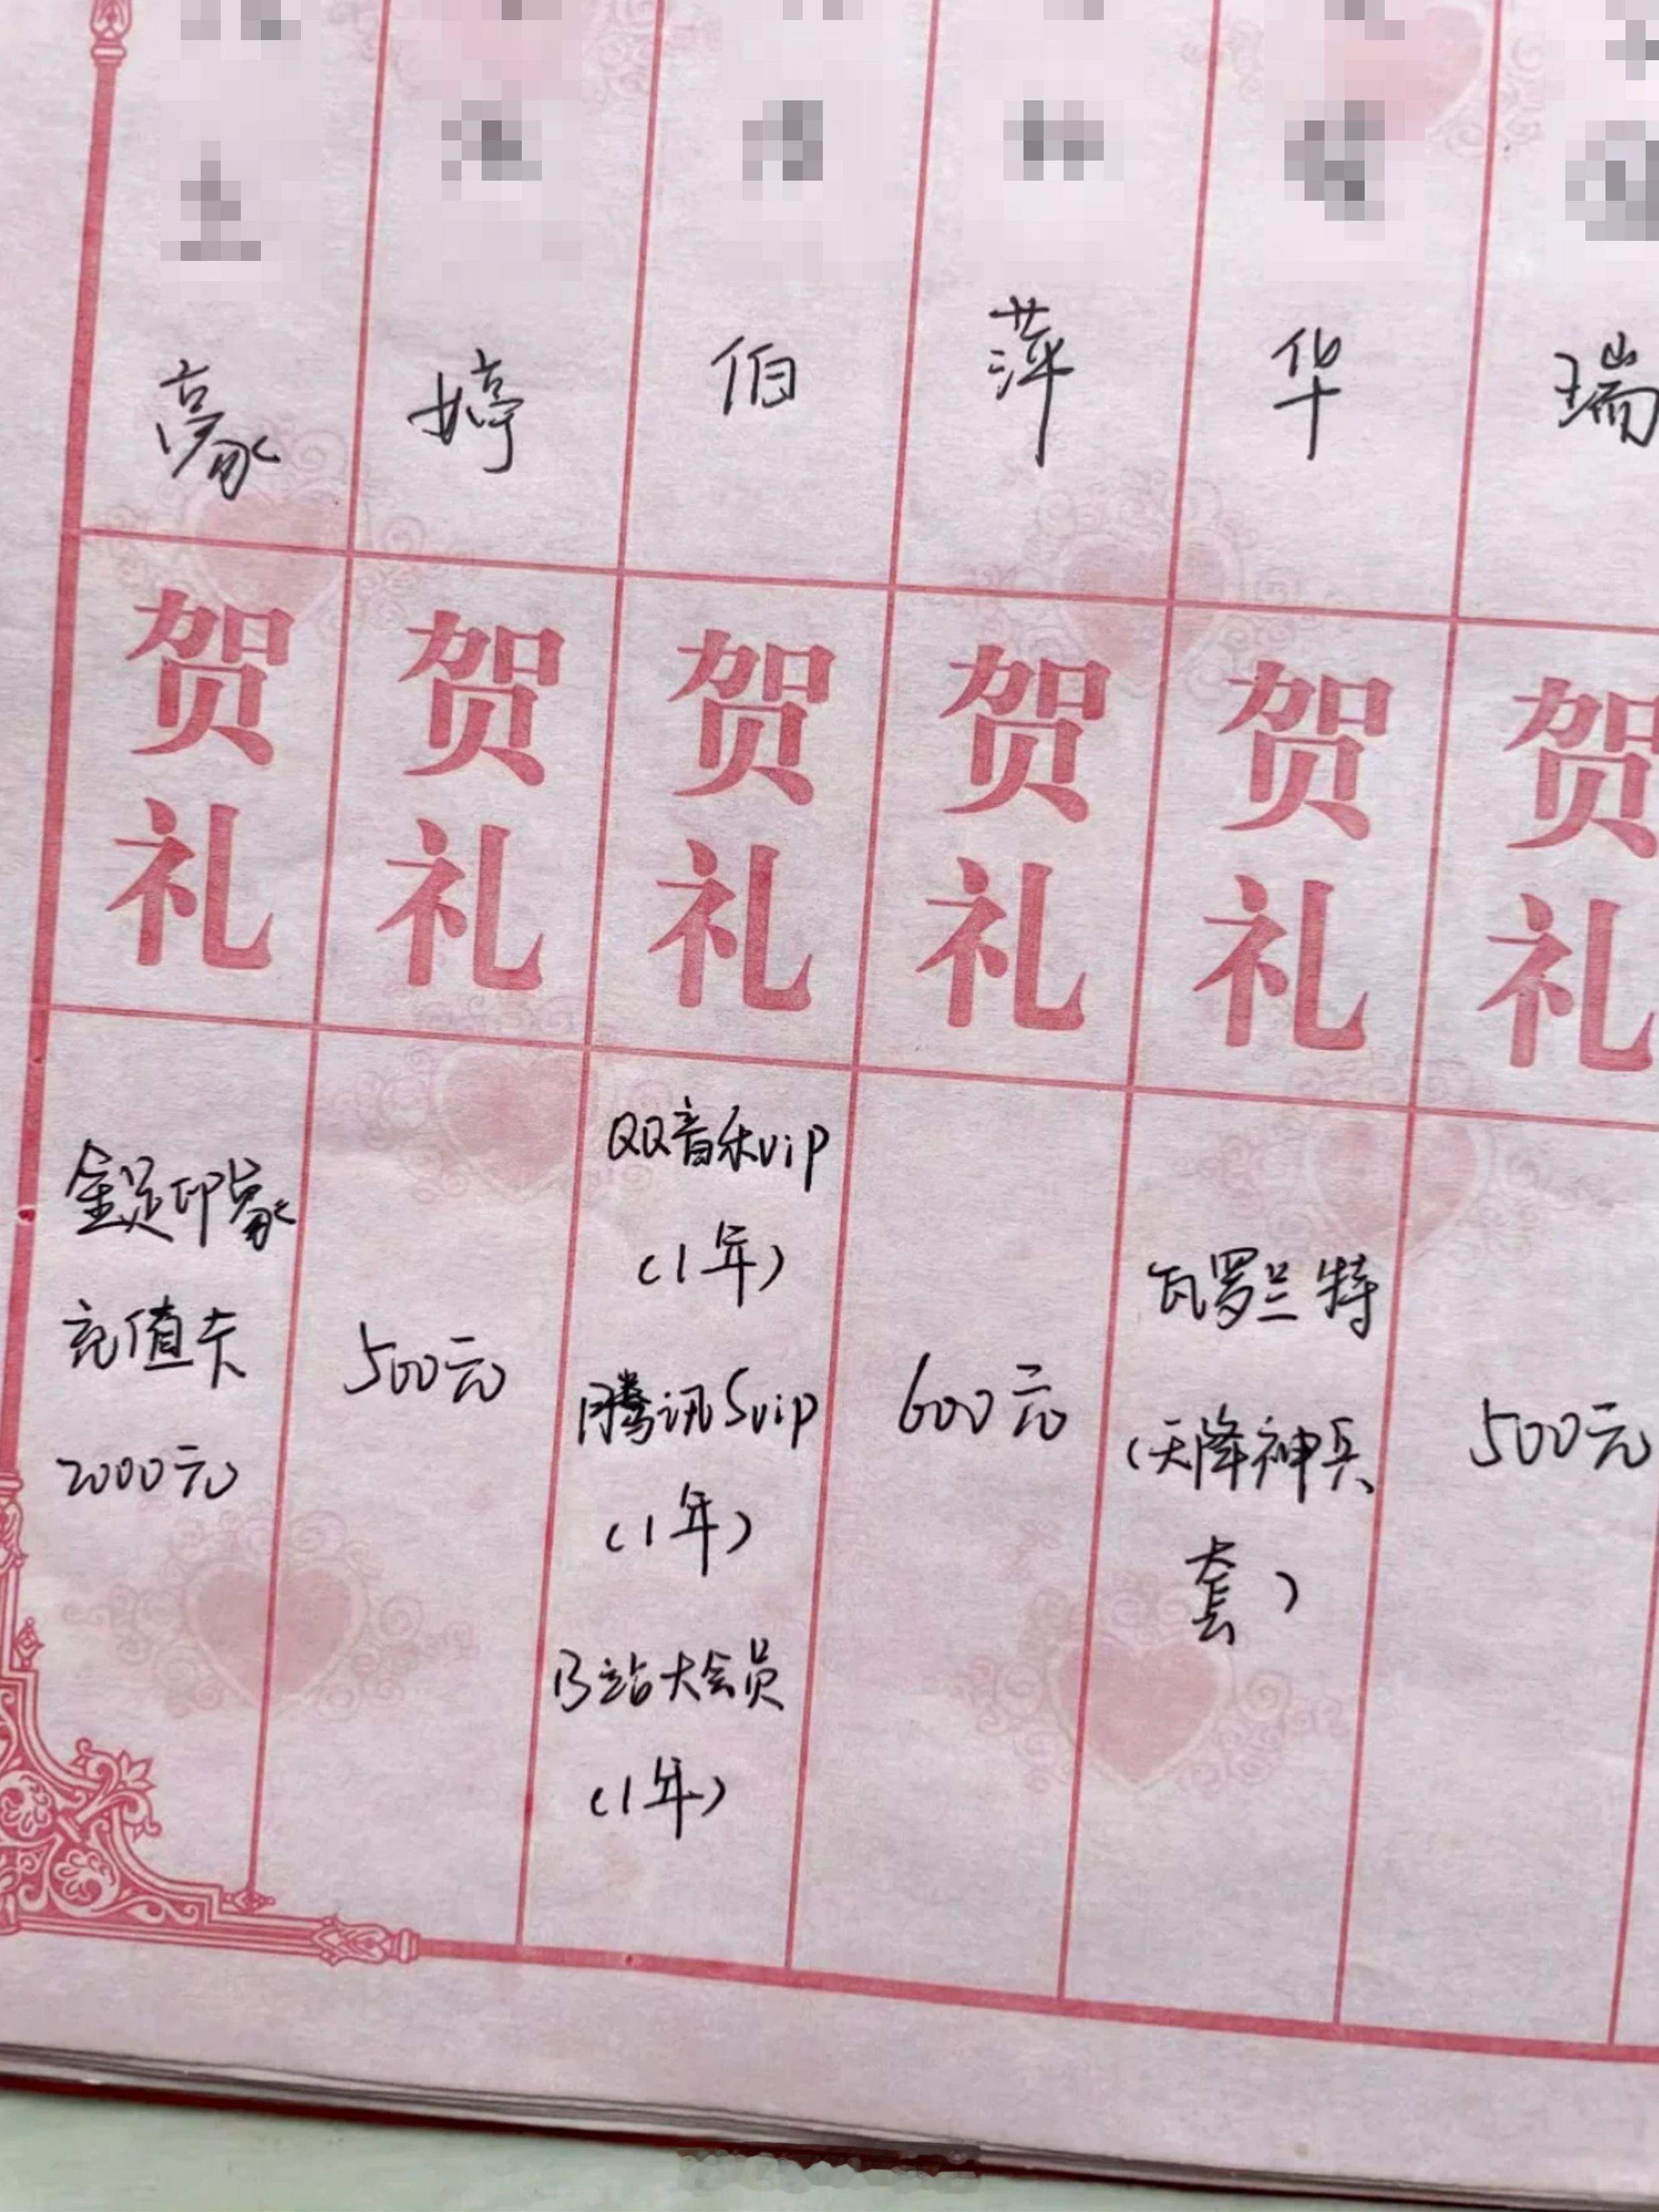 豪
婷
伯
萍
华
瑞
贺
礼
贺
礼
贺
礼
贺
礼
贺
礼
贺
礼
金足印象
充值卡
2000元
500元
QQ音乐vip
(1年)
腾讯Svip
(1年)
B站大会员
(1年)
600元
瓦罗兰特
(天降神兵
套)
500元